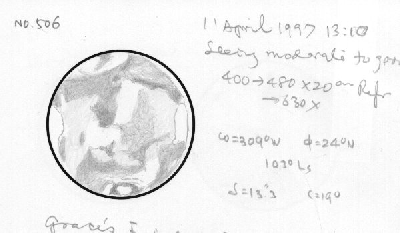 NO.506
11 April 1997 13:10
Seeing moderate to good
400→480 x 20cm Refr
→630x
ω=309°W φ=24°N
103° Ls
δ=13".3 ι=19°